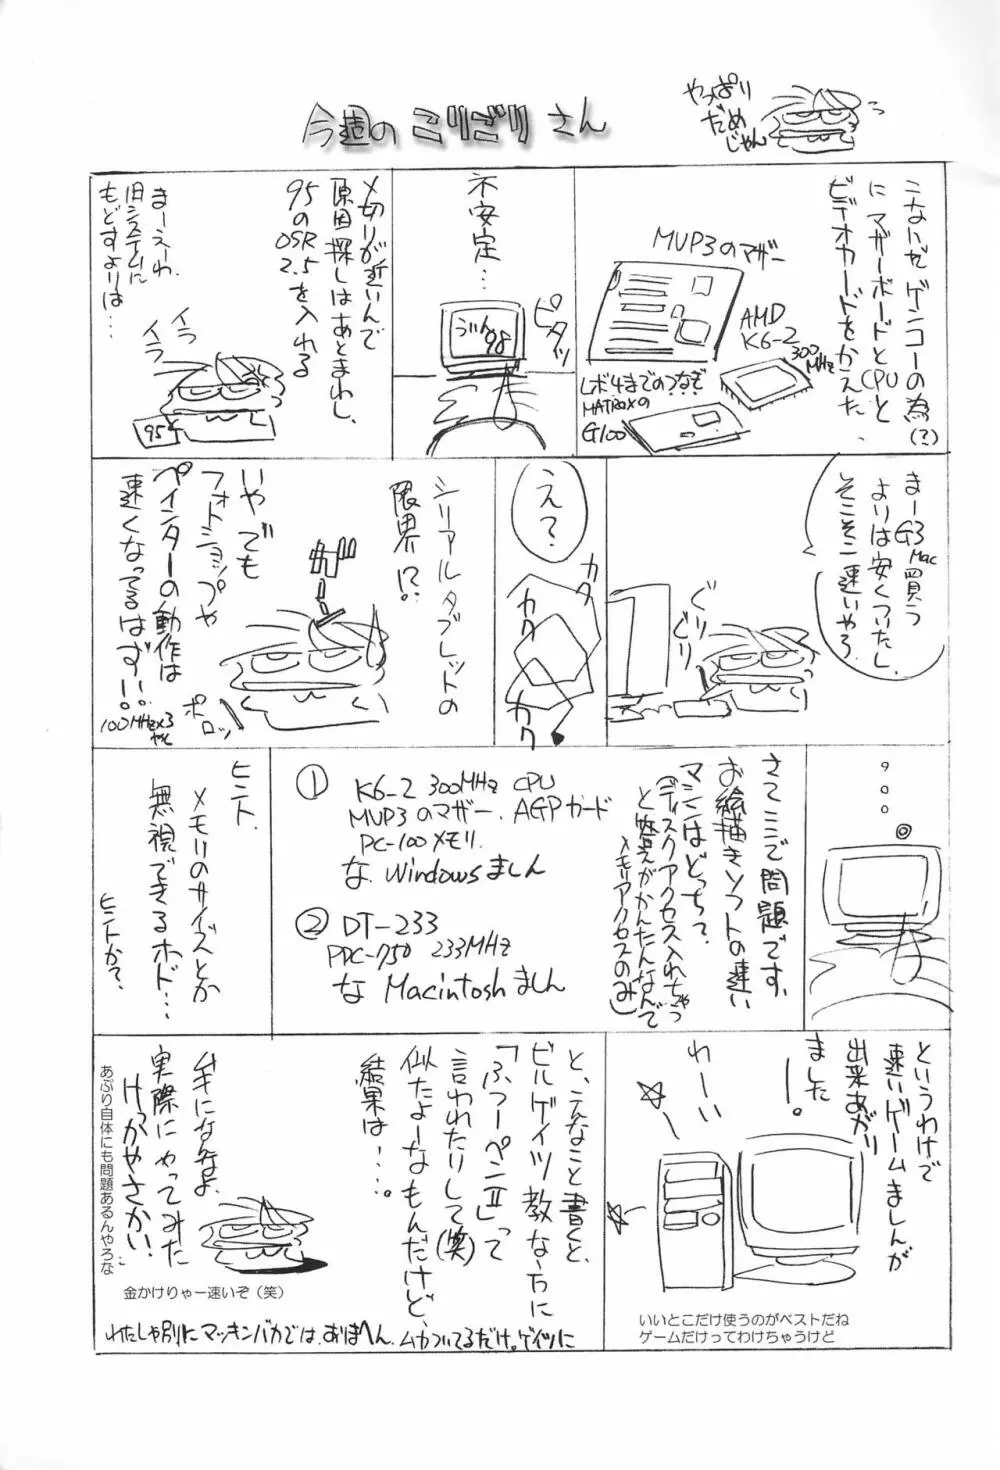 今週の こりごり さん
やっぱり
だめ
じゃん
こないだ ゲンコーの為(?)
に マザーボードとCPUと
ビデオカードをかえた
MVP3のマザー
AMD
K6-2
300MHz
レボ4までのつなぎ
MATROXの
G100
不安定…
うぃん98
ピタッ
〆切りが近いんで
原因探しはあとまわし、
95のOSR
2.5を入れる
まーえーわ、
旧システムに
もどすよりは…
イラ
イラ
95
まーG3Mac買う
よりは安くついたし、
そこそこ速いやろ
ぐりぐり
え?
カク
カク
カク
シリアルタブレットの
限界!?
いや でも
フォトショップや
ペインターの動作は
速くなってるはず!!
100MHz×3
やし
ポロッ
さてここで問題です、
お絵描きソフトの速い
マシンはどっち?
(ディスクアクセス入れちゃう
と答えがかんたんなんで
メモリアクセスのみ)
① K6-2 300MHz CPU
MVP3のマザー、AGPカード
PC-100メモリ
な Windowsましん
② DT-233
PPC-750 233MHz
な Macintoshましん
ヒント、
メモリのサイズとか
無視できるホド…
ヒントか?
というわけで
速いゲームましんが
出来あがり
ました
ー。
わーい
いいとこだけ使うのがベストだね
ゲームだけってわけちゃうけど
と、こんなこと書くと、
ビルゲイツ教な方に
「ふつーペンⅡ」って
言われたりして(笑)
似たよーなもんだけど、
結果は…。
ムキになんなよ、
実際にやってみた
けっかやさかい!
あぷり自体にも問題あるんやろな
金かけりゃー速いぞ(笑)
わたしゃ別にマッキンバカでは、ありまへん、ムカついてるだけ。ゲイツに